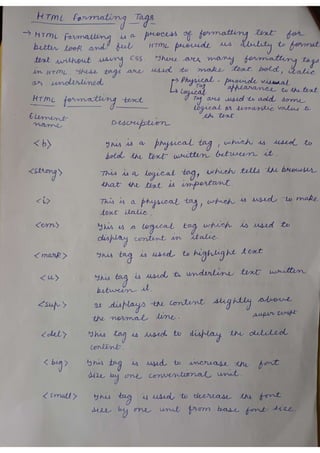 HTML Formating Tags
→ HTML Formatting is a process of formatting text for
better look and feel HTML provide us ability to format
text without using CSS. There are many formatting tags
in HTML these tags are used to make text bold, italic
or underlined
→ Physical tag - provide visual appearance to the text
→ Logical tag are used to add some logical or semantic value to the text
HTML formatting text
Element name Description
<b> This is a physical tag, which is used to
bold the text written between it.
<strong> This is a logical tag, which tells the browser
that the text is important
<i> This is a physical tag, which is used to make
text italic.
<em> This is a logical tag which is used to
display content in italic
<mark> This tag is used to highlight text
<u> This tag is used to underline text written
between it
<sup> It displays the content slightly above
the normal line. super script
<del> This tag is used to display the deleted
content.
<big> This tag is used to increase the font
size by one conventional unit.
<small> This tag is used to decrease the font
size by one unit from base font size.